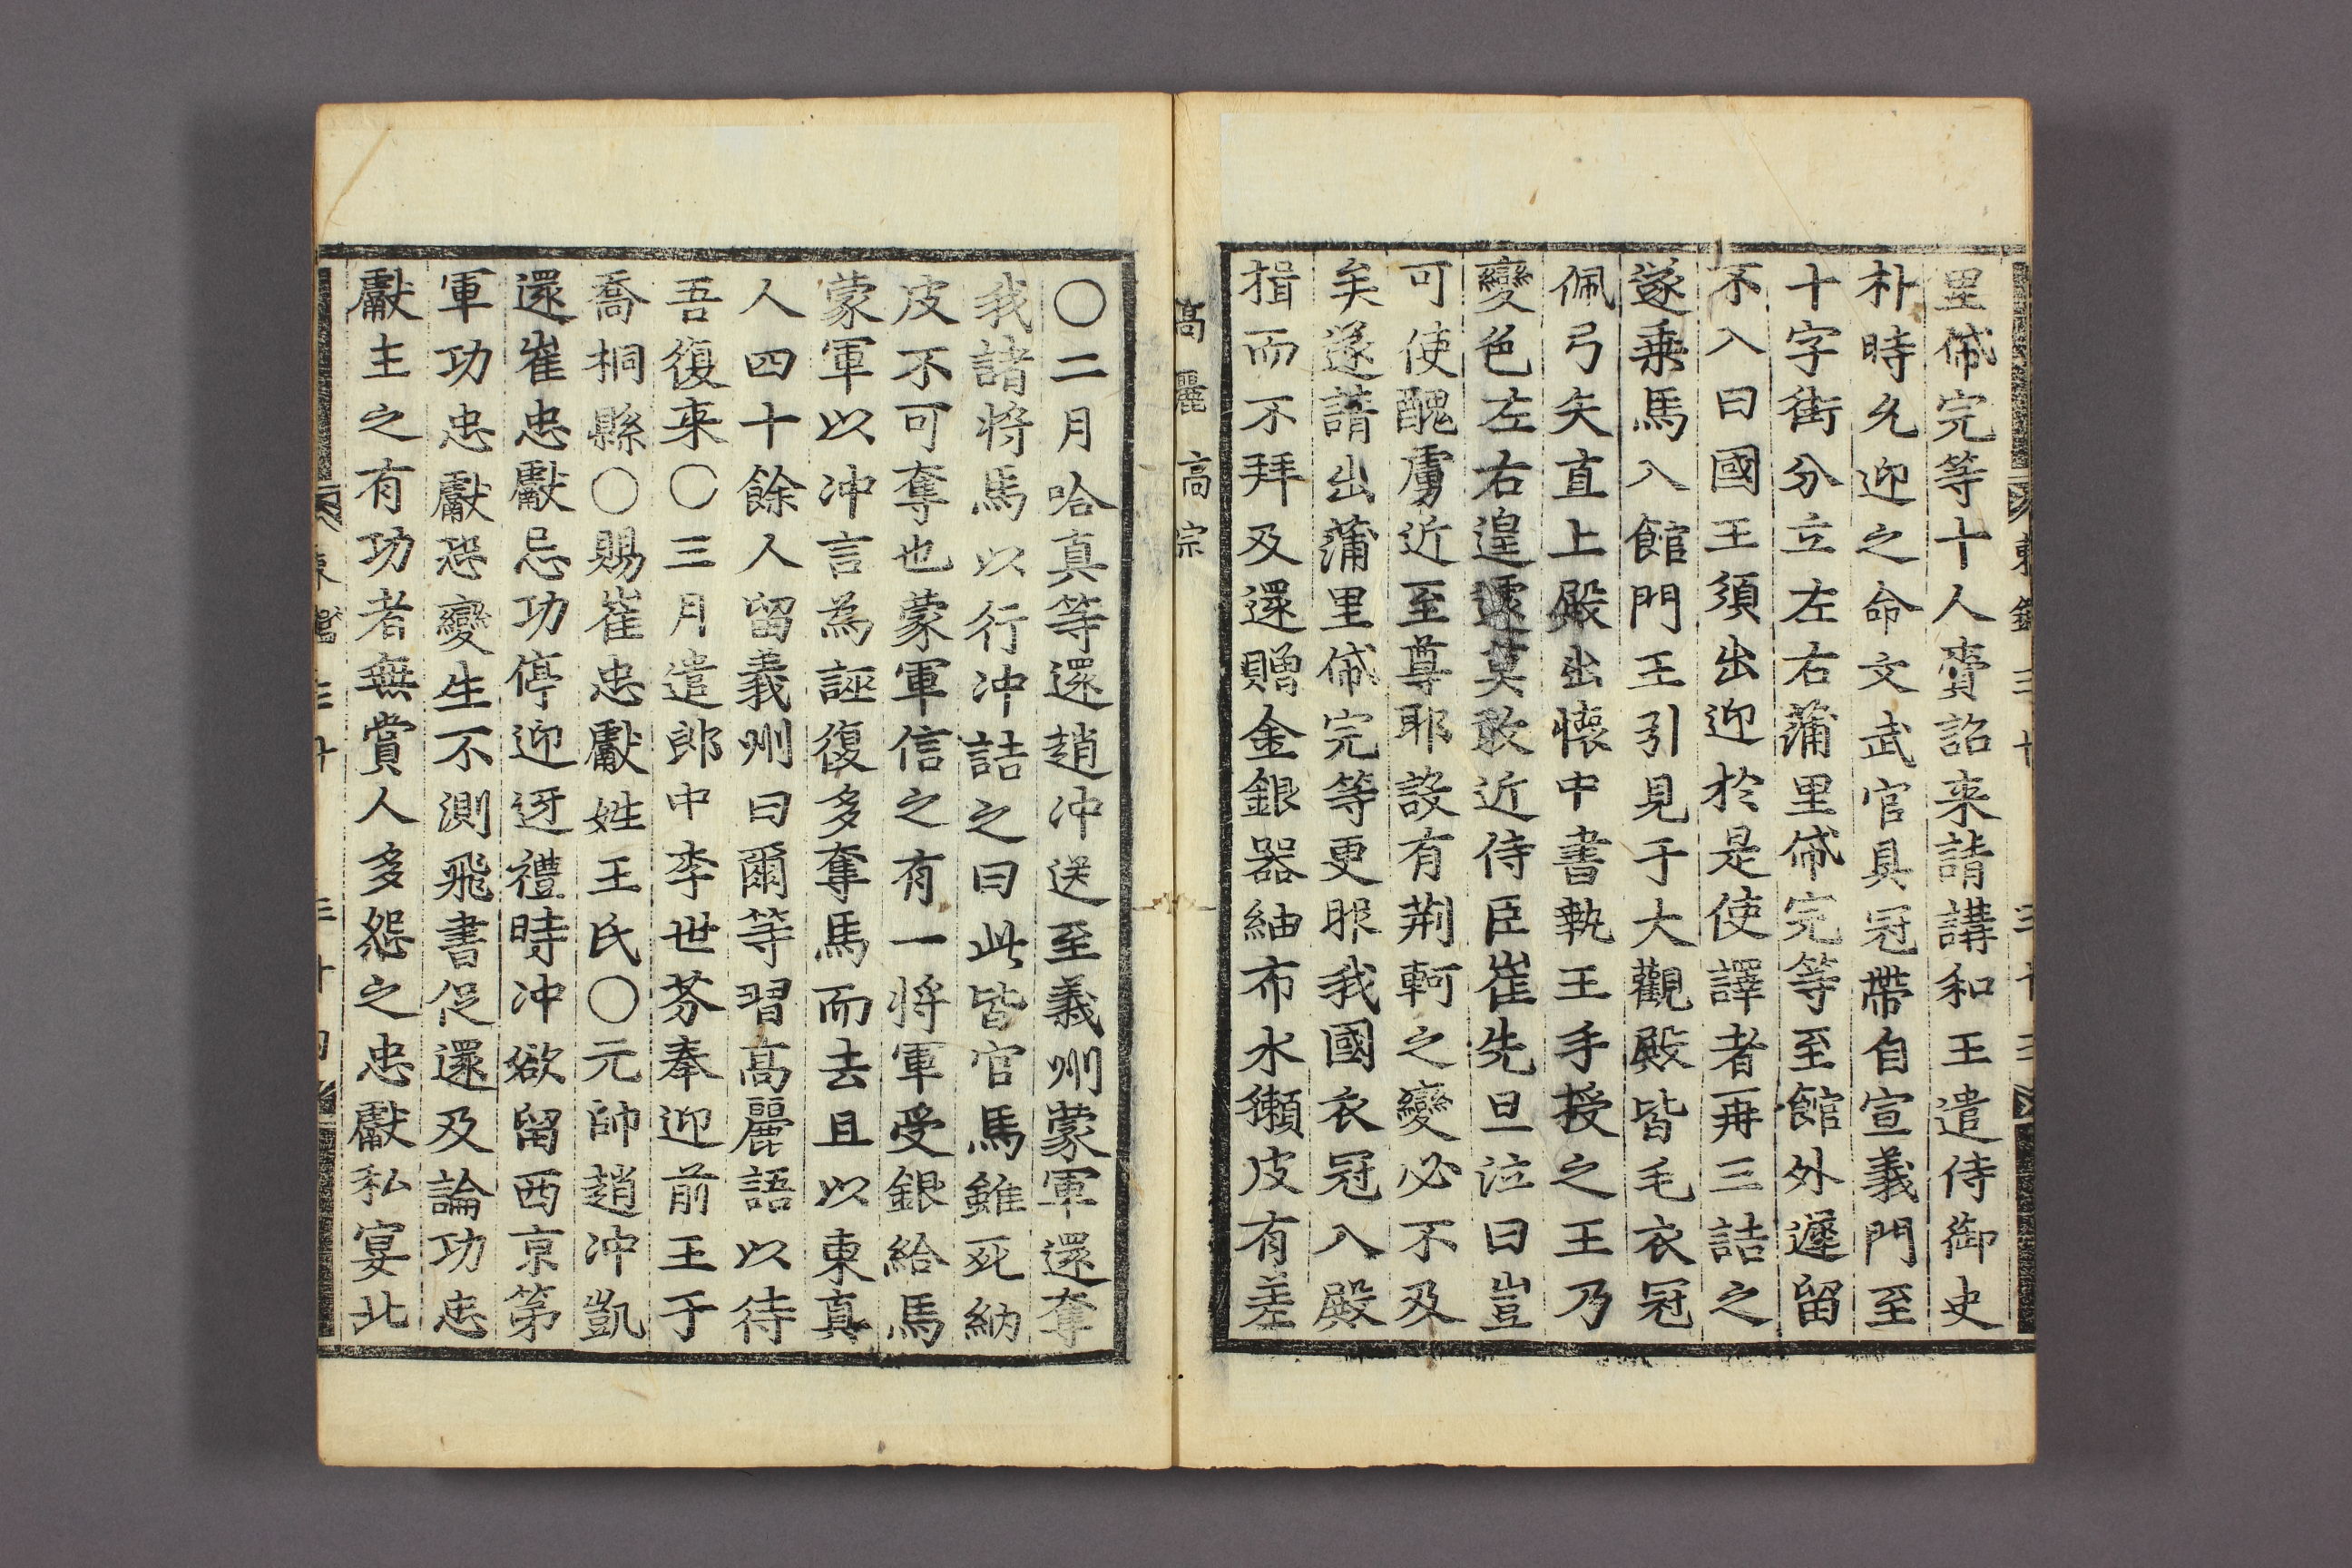 里帒完等十人賫詔来請講和王遣侍御史
朴時允迎之命文武官具冠帶自宣義門至
十字街分立左右蒲里帒完等至館外遲留
不入曰國王須出迎於是使譯者再三詰之
遂乗馬入館門王引見于大觀殿皆毛衣冠
佩弓矢直上殿出懐中書執王手授之王乃
變色左右遑遽莫敢近侍臣崔先旦泣曰豈
可使醜虜近至尊耶設有荆軻之變必不及
矣遂請出蒲里帒完等更服我國衣冠入殿
揖而不拜及還贈金銀器紬布水獺皮有差
髙麗 高宗
○二月哈真等還趙冲送至義州蒙軍還奪
我諸将馬以行冲詰之曰此皆官馬雖死納
皮不可奪也蒙軍信之有一将軍受銀給馬
蒙軍以冲言為誣復多奪馬而去且以東真
人四十餘人留義州曰爾等習髙麗語以待
吾復来○三月遣郎中李世芬奉迎前王于
喬桐縣○賜崔忠獻姓王氏○元帥趙冲凱
還崔忠獻忌功停迎迓禮時冲欲留西京第
軍功忠獻恐變生不測飛書促還及論功忠
獻主之有功者無賞人多怨之忠獻私宴北